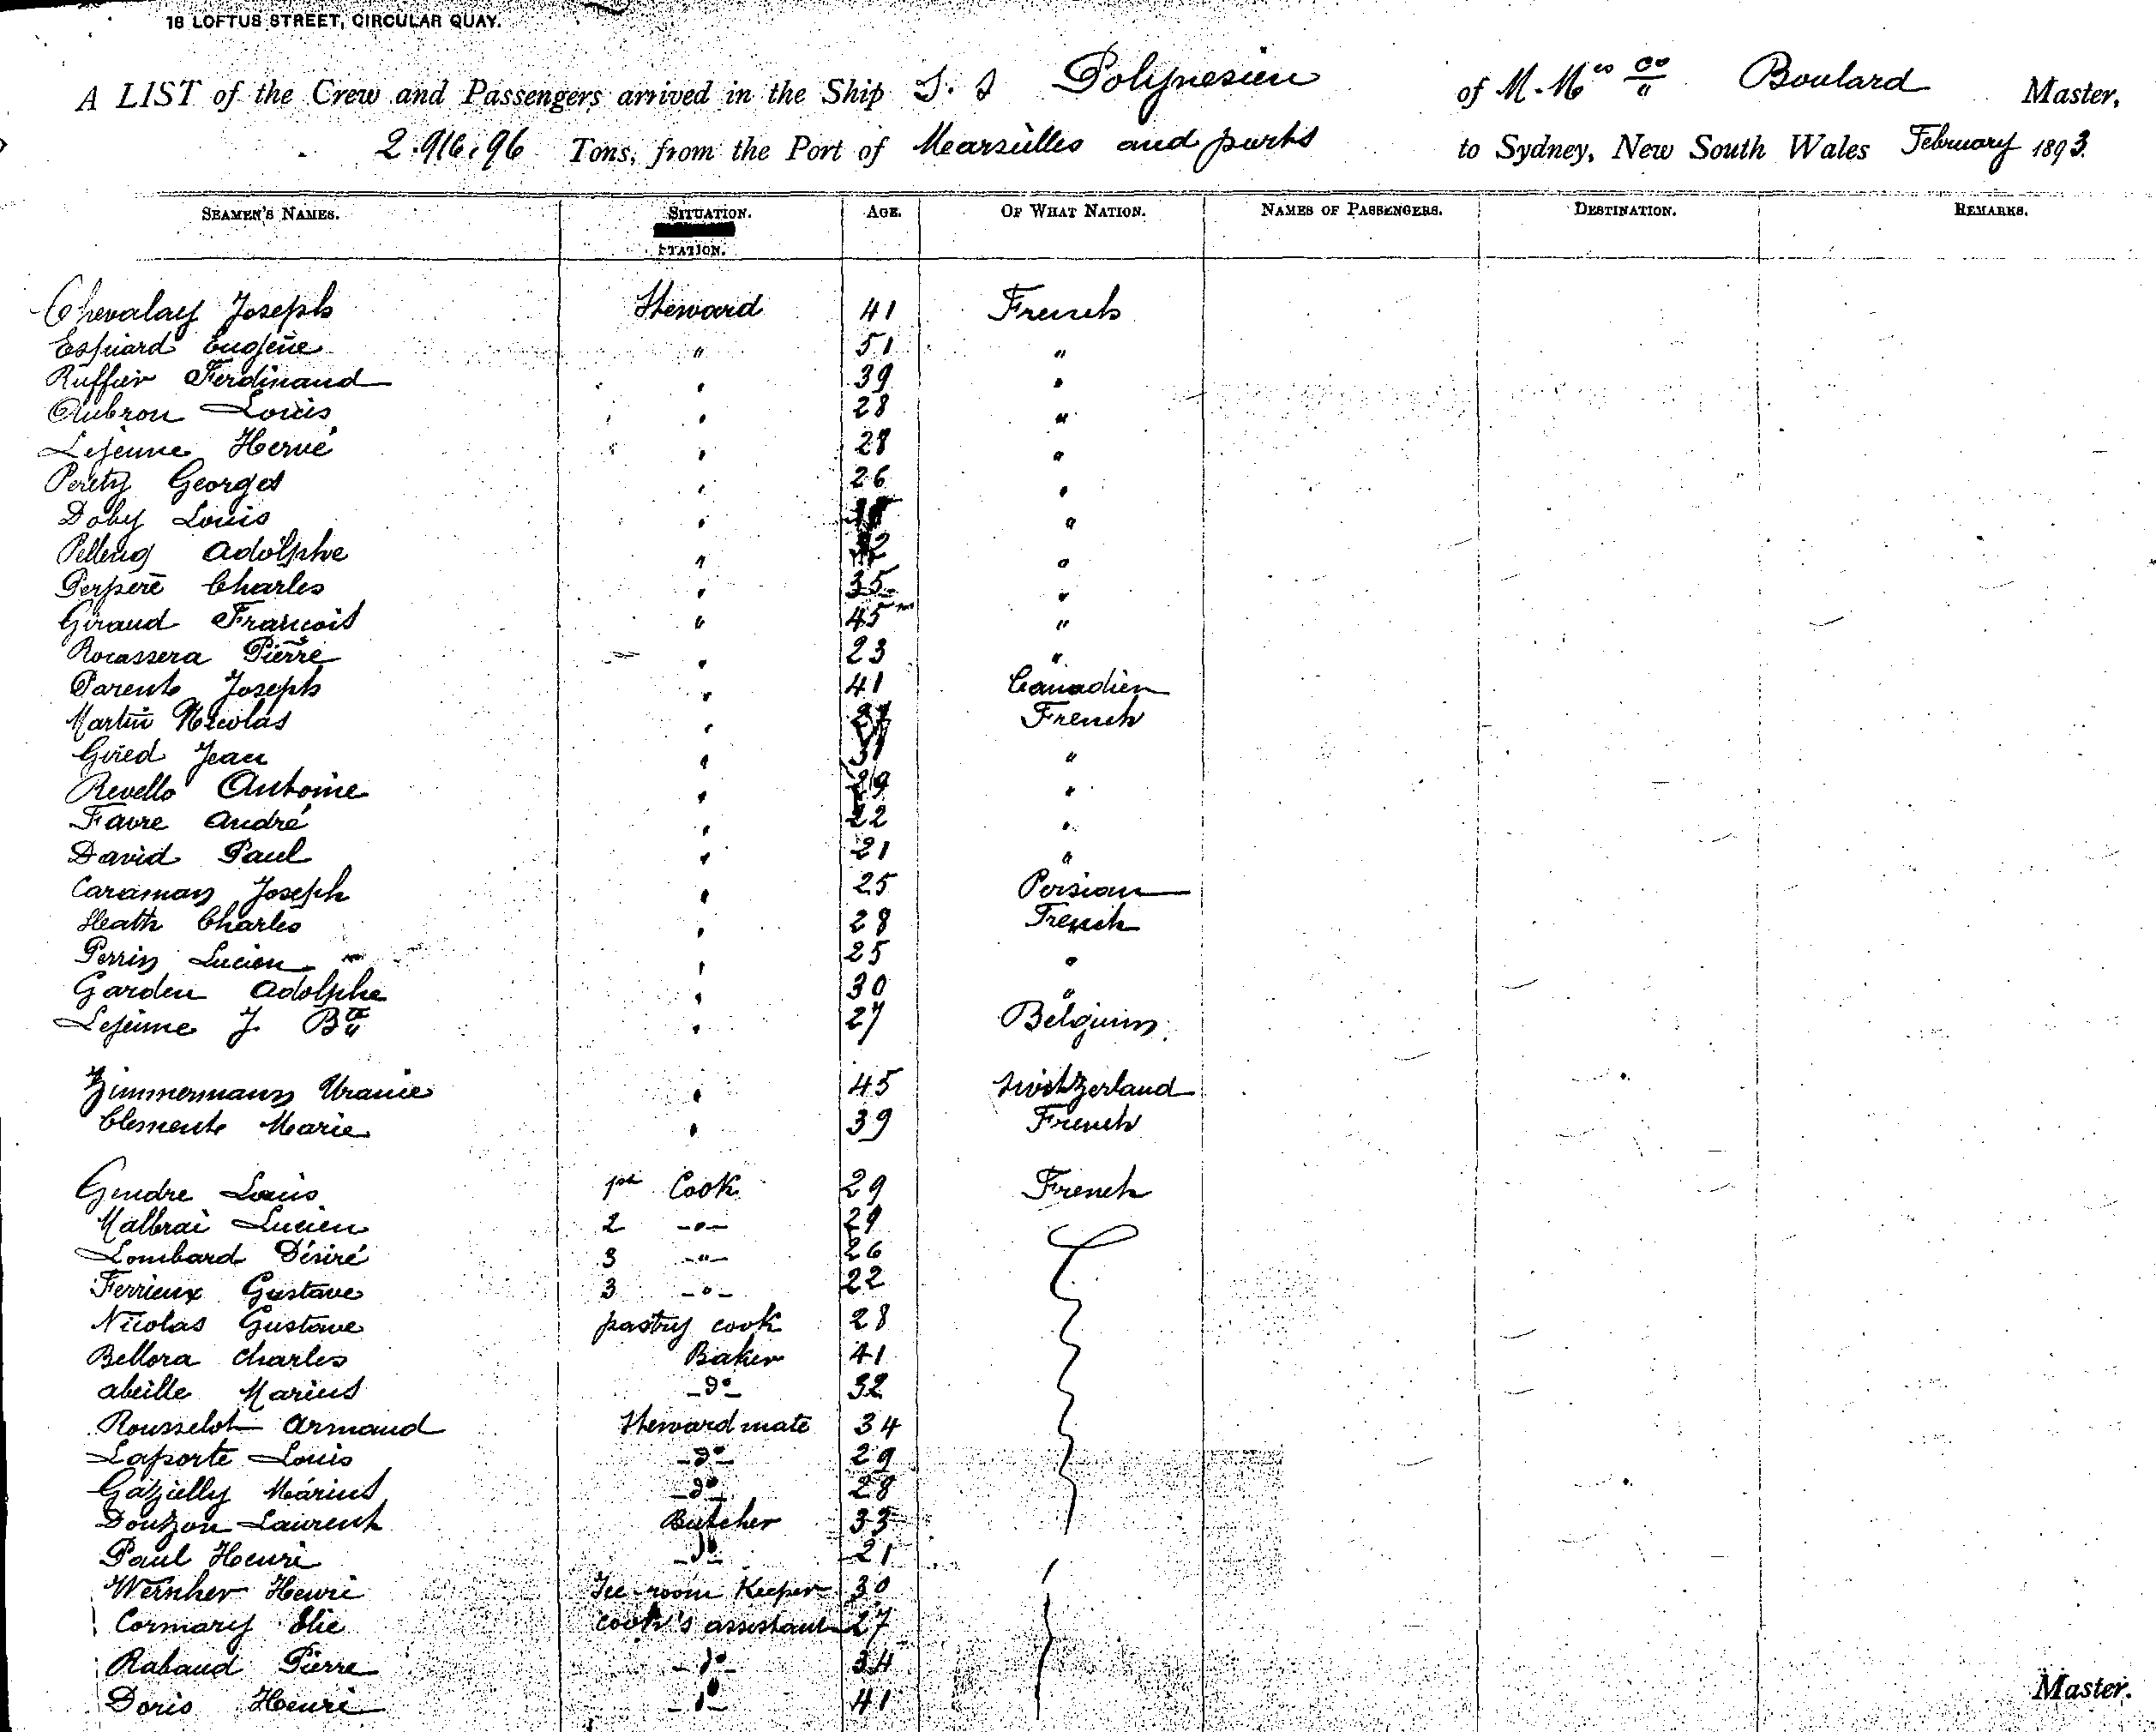 18 LOFTUS STREET, CIRCULAR QUAY.
A LIST of the Crew and Passengers arrived in the Ship S. S Polynesien of M. Mes Co Boulard Master,
2.916.96 Tons, from the Port of Marseilles and ports to Sydney, New South Wales February 1893.
SEAMEN'S NAMES. SITUATION. STATION. AGE. OF WHAT NATION. NAMES OF PASSENGERS. DESTINATION. REMARKS.
Chevalay Joseph Steward 41 French
Eugène " 51 "
Ruffier Ferdinand " 39 "
Aubron Louis " 28 "
Lejeune Hervé " 28 "
Georges " 26 "
Doby Louis " "
Adolphe " "
Perperé Charles " 35 "
Giraud François " 45 "
Rocassera Pierre " 23 "
Parent Joseph " 41 Canadien
Martin Nicolas " French
Jean " 31 "
Revello Antoine " 29 "
Favre André " 22 "
David Paul " 21 "
Caraman Joseph " 25 Persian
Heath Charles " 28 French
Perrin Lucien " 25 "
Garden Adolphe " 30 "
Lejeune J. Bte " 27 Belgium
Zimmermann Uranie " 45 Switzerland
Clement Marie " 39 French
Gendre Louis Cook 29 French
Malbrai Lucien 2 -"- 29
Lombard Désiré 3 -"- 26
Ferrieux Gustave 3 -"- 22
Nicolas Gustave pastry cook 28
Bellora Charles Baker 41
Abeille Marius -do- 32
Rousselot Armand Steward mate 34
Laporte Louis -do- 29
Gazielly Marius -do- 28
Douzon Laurent Butcher 33
Paul Henri -do- 21
Wernher Henri Ice-room Keeper 30
Cormary Elie cook's assistant 27
Rabaud Pierre -do- 34
Doris Henri -do- 41
Master.